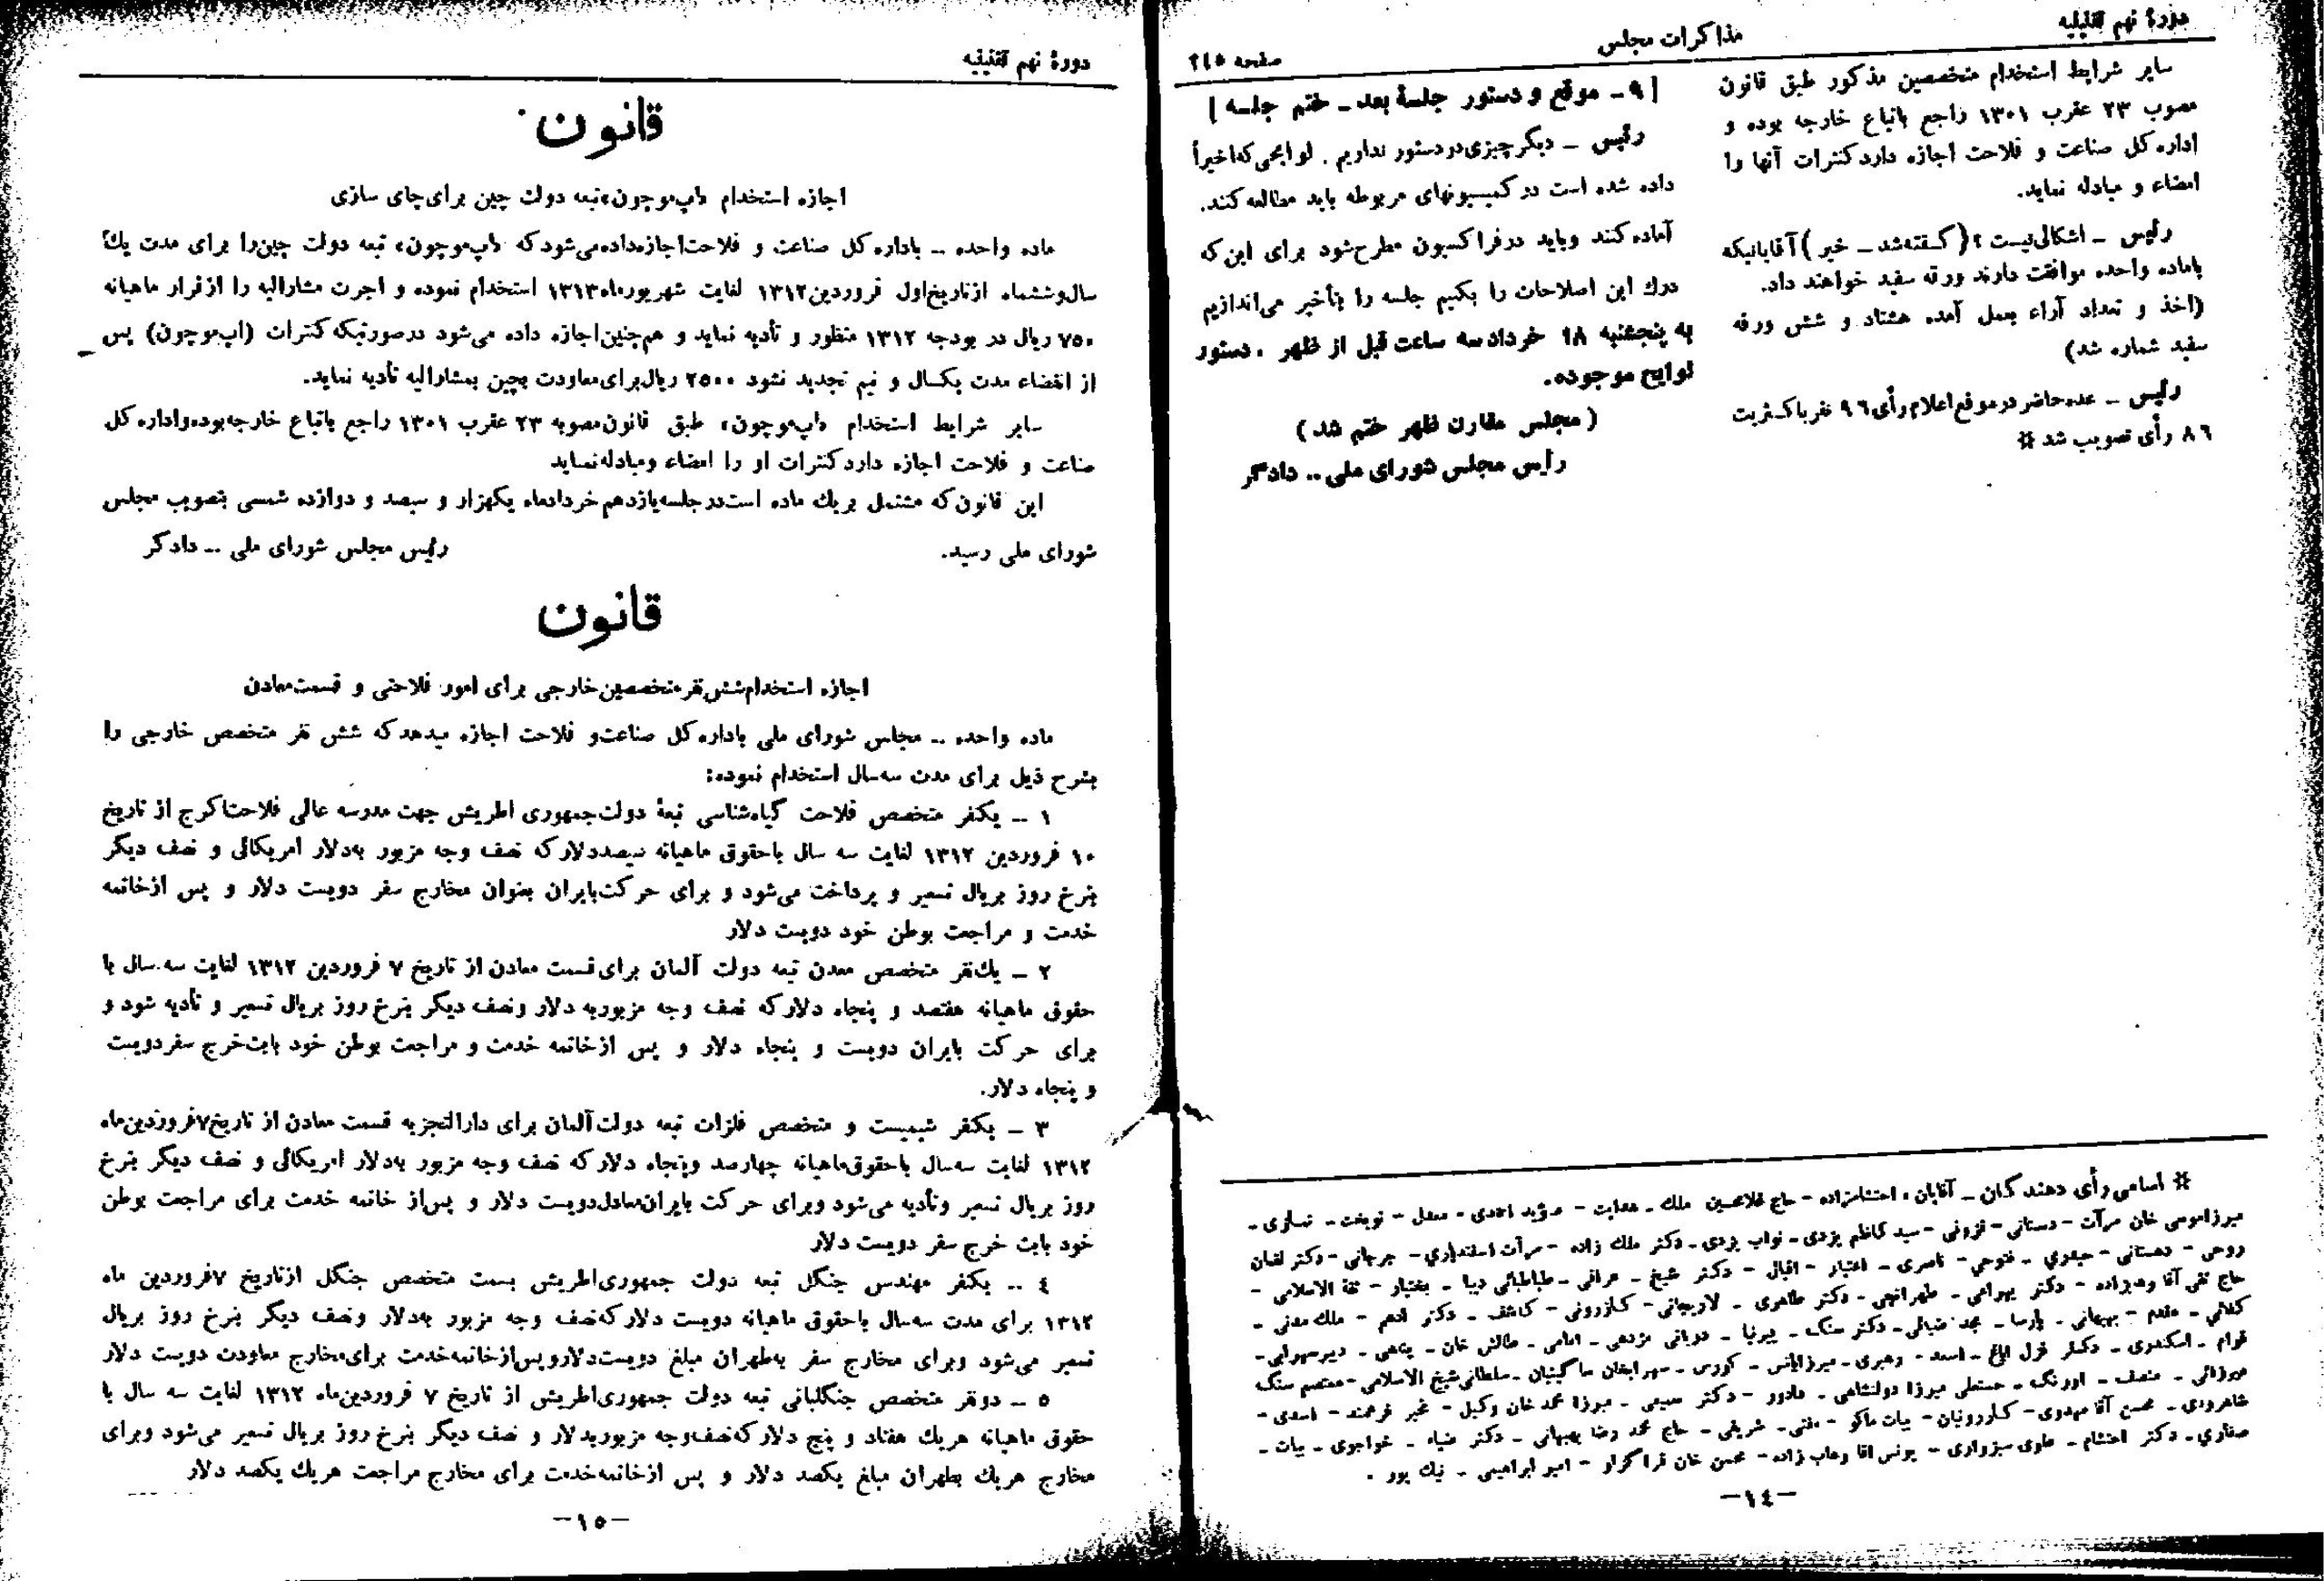 دورهٔ نهم تقنینیه
مذاکرات مجلس
صفحه ۲۱۵
سایر شرایط استخدام متخصصین مذکور طبق قانون
مصوب ۲۳ عقرب ۱۳۰۱ راجع باتباع خارجه بوده و
اداره کل صناعت و فلاحت اجازه دارد کنترات آنها را
امضاء و مبادله نماید.
رئیس ـ اشکالی نیست؟ (گفته شد ـ خیر) آقایانیکه
باماده واحده موافقت دارند ورقه سفید خواهند داد.
(اخذ و تعداد آراء بعمل آمده هشتاد و شش ورقه
سفید شماره شد)
رئیس ـ عده حاضر در موقع اعلام رأی ۹۶ نفر باکثریت
۸۶ رأی تصویب شد #
[۹ ـ موقع و دستور جلسهٔ بعد ـ ختم جلسه]
رئیس ـ دیگر چیزی در دستور نداریم. لوایحی که اخیراً
داده شده است در کمیسیونهای مربوطه باید مطالعه کنند.
آماده کنند و باید در فراکسیون مطرح شود برای این که
درک این اصلاحات را بکنیم جلسه را بتأخیر می‌اندازیم
به پنجشنبه ۱۸ خرداد سه ساعت قبل از ظهر. دستور
لوایح موجوده.
(مجلس مقارن ظهر ختم شد)
رئیس مجلس شورای ملی .. دادگر
# اسامی رأی دهندگان ـ آقایان: احتشامزاده - حاج غلامحسین ملک ـ هدایت - مؤید احمدی - معدل - نوبخت - نمازی -
میرزا موسی خان مرآت - دستانی - قزونی - سید کاظم یزدی ـ نواب یزدی ـ دکتر ملک زاده - مرآت اسفندیاری - جرجانی - دکتر لقمان
روحی - دهستانی - حیدری ـ فتوحی - ناصری ـ اعتبار - اقبال - دکتر شیخ ـ عراقی ـ طباطبائی دیبا ـ بختیار - ثقة الاسلامی -
حاج تقی آقا وهابزاده - دکتر بهرامی ـ طهرانچی - دکتر طاهری ـ لاریجانی - کازرونی - کاشف ـ دکتر ادهم - ملک مدنی -
مقدم - بهبهانی ـ پارسا ـ دکتر سنگ ـ پیرنیا ـ دربانی مژدهی ـ امامی ـ طالش خان ـ پناهی ـ دبیر سهرابی -
قوام ـ اسکندری ـ دکتر قزل ایاغ ـ اسعد - رهبری ـ میرزایانس - کورس ـ سهرابخان ساگینیان ـ سلطانی شیخ الاسلامی - معتصم سنگ
میرزائی ـ منصف - اورنگ ـ حسنعلی میرزا دولتشاهی ـ دادور - دکتر سمیعی ـ میرزا محمد خان وکیل - مخبر فرهمند - اسدی -
شاهرودی ـ محسن آقا مهدوی - کازرونیان - بیات ماکو - مفتی ـ شریفی - حاج محمد رضا بهبهانی ـ دکتر ضیاء ـ خواجوی ـ بیات ـ
صفاری ـ دکتر احتشام ـ علوی سبزواری - یونس آقا وهاب زاده - محسن خان قراگزلو - امیر ابراهیمی ـ نیک پور.
-۱۴-
دورهٔ نهم تقنینیه
قانون
اجازه استخدام «اپ‌موچون» تبعه دولت چین برای چای سازی
ماده واحده ـ باداره کل صناعت و فلاحت اجازه داده می‌شود که «اپ‌موچون» تبعه دولت چین را برای مدت یک
سال و ششماه از تاریخ اول فروردین ۱۳۱۲ لغایت شهریور ماه ۱۳۱۳ استخدام نموده و اجرت مشارالیه را از قرار ماهیانه
۷۵۰ ریال در بودجه ۱۳۱۲ منظور و تأدیه نماید و هم‌چنین اجازه داده می‌شود در صورتیکه کنترات (اپ‌موچون) پس
از انقضاء مدت یکسال و نیم تجدید نشود ۲۵۰۰ ریال برای معاودت بچین بمشارالیه تأدیه نماید.
سایر شرایط استخدام «اپ‌موچون» طبق قانون مصوبه ۲۳ عقرب ۱۳۰۱ راجع باتباع خارجه بوده و اداره کل
صناعت و فلاحت اجازه دارد کنترات او را امضاء و مبادله نماید
این قانون که مشتمل بر یک ماده است در جلسه یازدهم خرداد ماه یکهزار و سیصد و دوازده شمسی بتصویب مجلس
شورای ملی رسید.
رئیس مجلس شورای ملی .. دادگر
قانون
اجازه استخدام شش نفر متخصصین خارجی برای امور فلاحتی و قسمت معادن
ماده واحده .. مجلس شورای ملی باداره کل صناعت و فلاحت اجازه میدهد که شش نفر متخصص خارجی را
بشرح ذیل برای مدت سه سال استخدام نموده:
۱ .. یکنفر متخصص فلاحت گیاه شناسی تبعهٔ دولت جمهوری اطریش جهت مدرسه عالی فلاحت کرج از تاریخ
۱۰ فروردین ۱۳۱۲ لغایت سه سال با حقوق ماهیانه سیصد دلار که نصف وجه مزبور به دلار امریکائی و نصف دیگر
بنرخ روز بریال تسعیر و پرداخت می‌شود و برای حرکت بایران بعنوان مخارج سفر دویست دلار و پس از خاتمه
خدمت و مراجعت بوطن خود دویست دلار
۲ ـ یک نفر متخصص معدن تبعه دولت آلمان برای قسمت معادن از تاریخ ۷ فروردین ۱۳۱۲ لغایت سه سال با
حقوق ماهیانه هفتصد و پنجاه دلار که نصف وجه مزبور به دلار و نصف دیگر بنرخ روز بریال تسعیر و تأدیه شود و
برای حرکت بایران دویست و پنجاه دلار و پس از خاتمه خدمت و مراجعت بوطن خود بابت خرج سفر دویست
و پنجاه دلار.
۳ ـ یکنفر شیمیست و متخصص فلزات تبعه دولت آلمان برای دارالتجزیه قسمت معادن از تاریخ ۷ فروردین ماه
۱۳۱۲ لغایت سه سال با حقوق ماهیانه چهارصد و پنجاه دلار که نصف وجه مزبور به دلار امریکائی و نصف دیگر بنرخ
روز بریال تسعیر و تأدیه می‌شود و برای حرکت بایران معادل دویست دلار و پس از خاتمه خدمت برای مراجعت بوطن
خود بابت خرج سفر دویست دلار
۴ .. یکنفر مهندس جنگل تبعه دولت جمهوری اطریش بسمت متخصص جنگل از تاریخ ۷ فروردین ماه
۱۳۱۲ برای مدت سه سال با حقوق ماهیانه دویست دلار که نصف وجه مزبور به دلار و نصف دیگر بنرخ روز بریال
تسعیر می‌شود و برای مخارج سفر به طهران مبلغ دویست دلار و پس از خاتمه خدمت برای مخارج معاودت دویست دلار
۵ ـ دو نفر متخصص جنگلبانی تبعه دولت جمهوری اطریش از تاریخ ۷ فروردین ماه ۱۳۱۲ لغایت سه سال با
حقوق ماهیانه هریک هفتاد و پنج دلار که نصف وجه مزبور بدلار و نصف دیگر بنرخ روز بریال تسعیر می‌شود و برای
مخارج هریک بطهران مبلغ یکصد دلار و پس از خاتمه خدمت برای مخارج مراجعت هریک یکصد دلار
-۱۵-